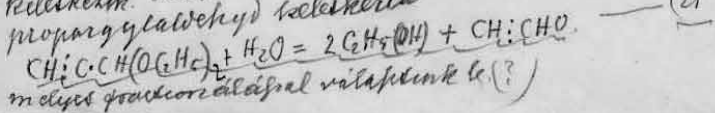 keletkezik.
propargylaldehyd keletkezik
CH⋮C·CH(OC₂H₅)₂ + H₂O = 2 C₂H₅(OH) + CH⋮CHO.
melyet fractionálással választunk le (?)